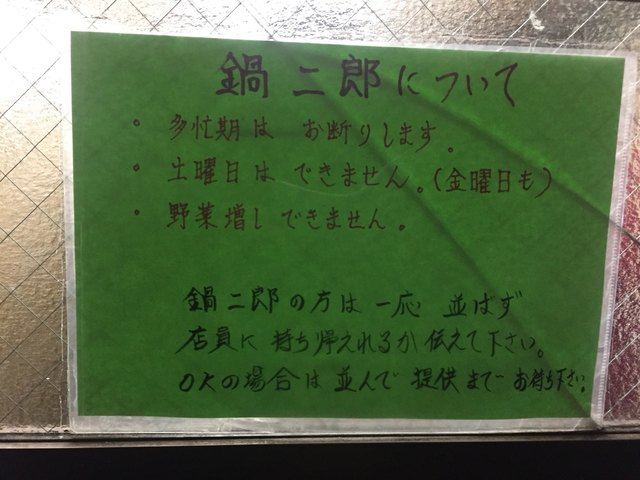 鍋二郎について
・多忙期は お断りします。
・土曜日は できません。(金曜日も)
・野菜増しできません。
鍋二郎の方は一応 並ばず
店員に 持ち帰えれるか 伝えて下さい。
OKの場合は並んで 提供まで お待ち下さい。